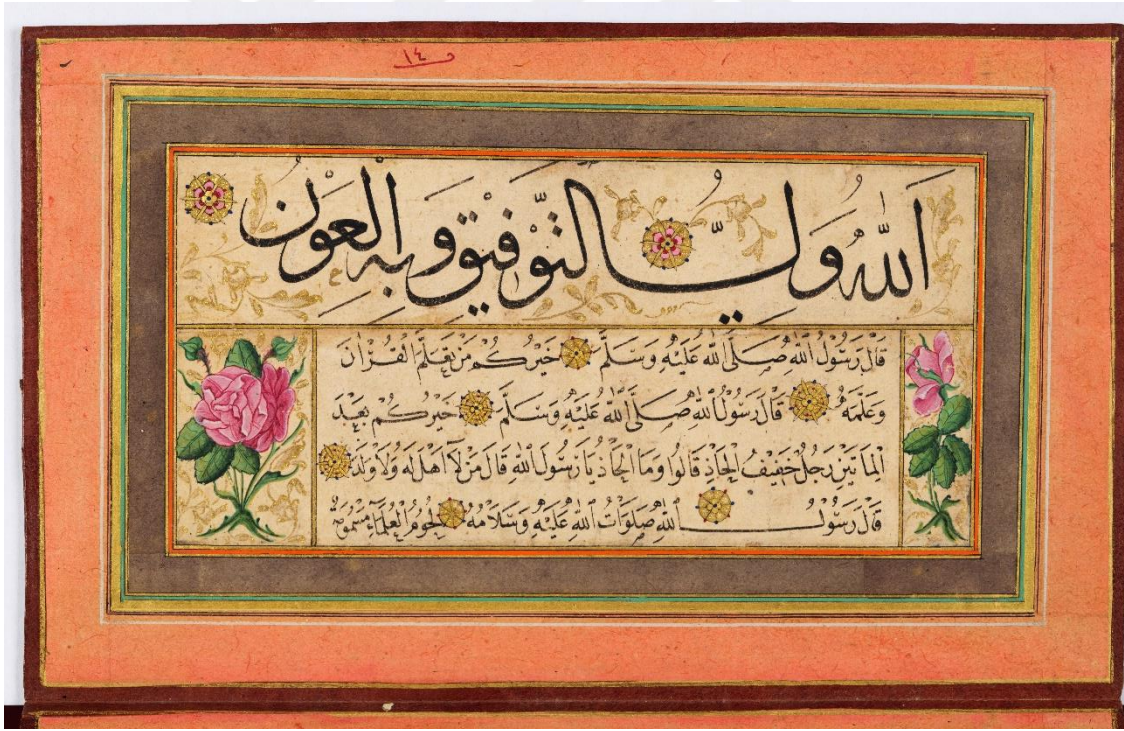 ١٤
اَللّٰهُ وَلِيُّ التَّوْفِيقِ وَبِهِ الْعَوْنُ
قَالَ رَسُولُ اللّٰهِ صَلَّى اللّٰهُ عَلَيْهِ وَسَلَّمَ خَيْرُكُمْ مَنْ تَعَلَّمَ الْقُرْاٰنَ
وَعَلَّمَهُ قَالَ رَسُولُ اللّٰهِ صَلَّى اللّٰهُ عَلَيْهِ وَسَلَّمَ خَيْرُكُمْ بَعْدَ
الْمِأَتَيْنِ رَجُلٌ خَفِيفُ الْحَاذِ قَالُوا وَمَا الْحَاذُ يَا رَسُولَ اللّٰهِ قَالَ مَنْ لَا اَهْلَ لَهُ وَلَا وَلَدَ
قَالَ رَسُولُ اللّٰهِ صَلَوَاتُ اللّٰهِ عَلَيْهِ وَسَلَامُهُ لُحُومُ الْعُلَمَاءِ مَسْمُومَةٌ